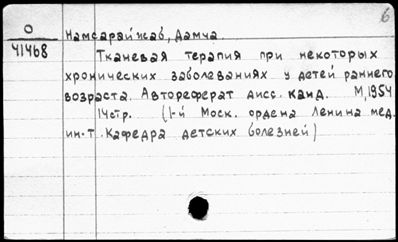 6
О
41468
Намсарайжаб, Дамча.
Тканевая терапия при некоторых
хронических заболеваниях у детей раннего
возраста. Автореферат дисс. канд. М, 1954
14стр. (1-й Моск. ордена Ленина мед.
ин-т. Кафедра детских болезней)